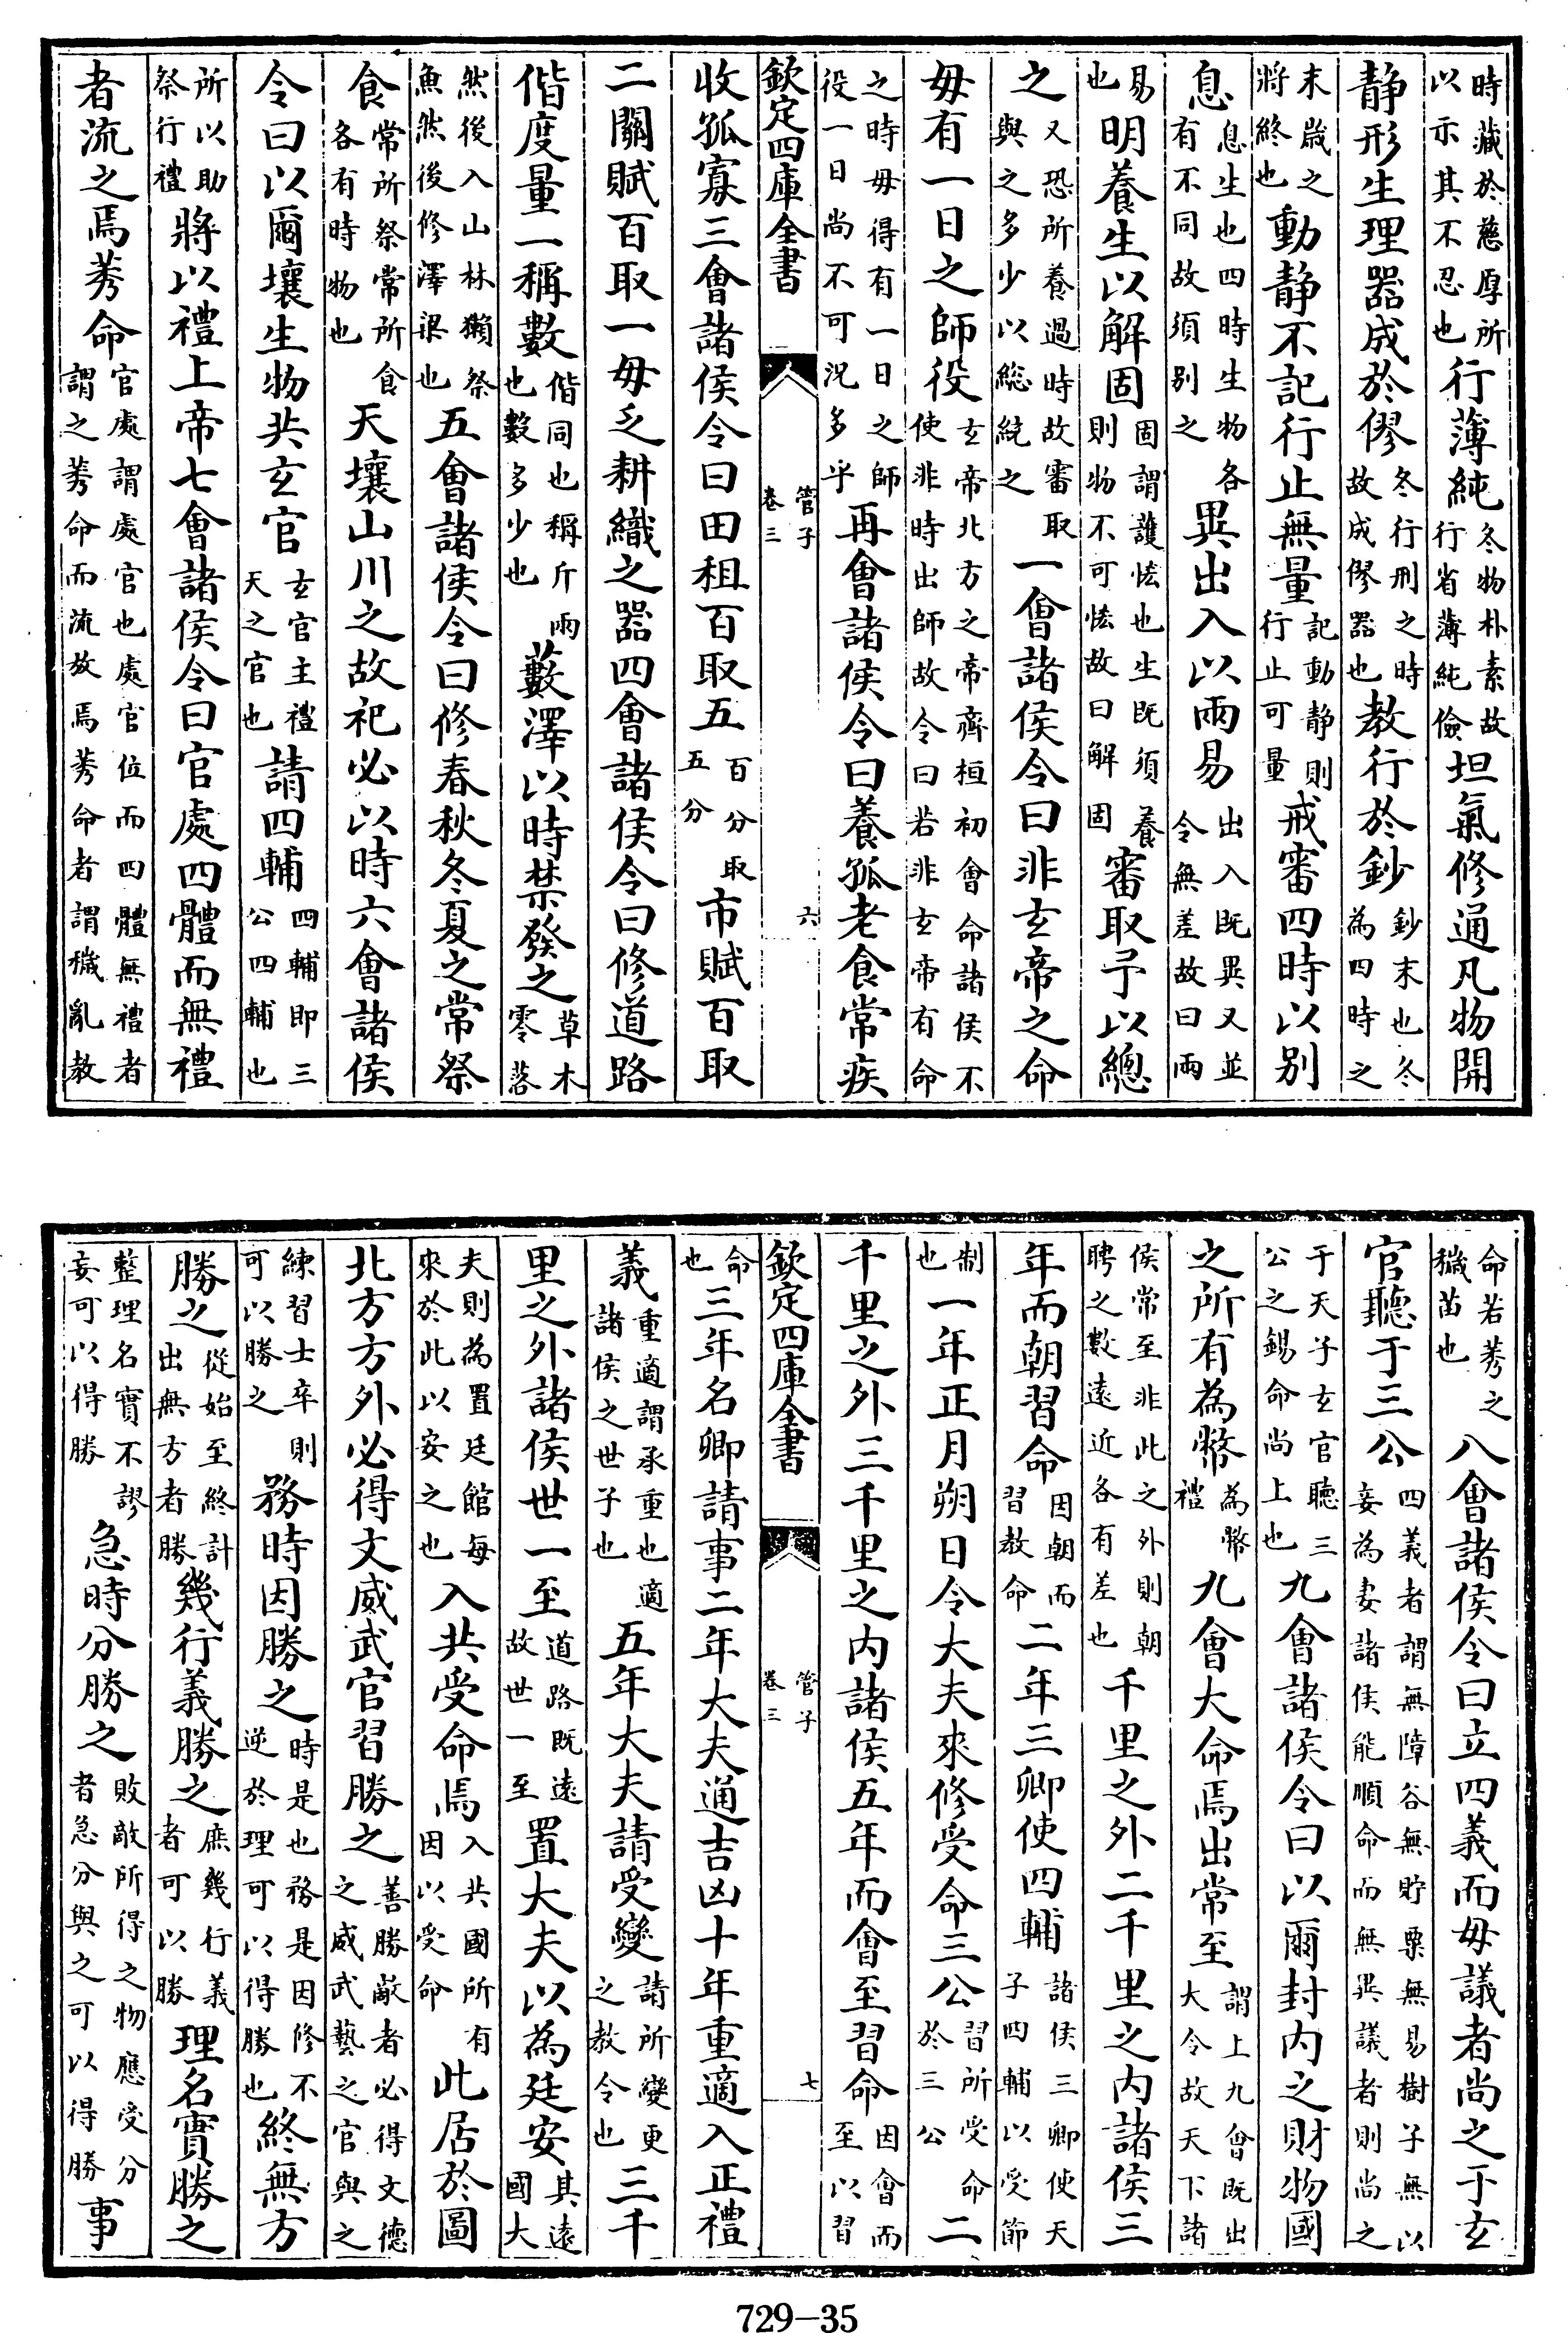 時藏於慈厚所以示其不忍也行薄純冬物朴素故行省薄純儉坦氣修通凡物開
静形生理器成於僇冬行刑之時故成僇器也教行於鈔鈔末也冬為四時之
末歲之將終也動静不記行止無量記動静則行止可量戒審四時以别
息息生也四時生物各有不同故須别之異出入以兩易出入既異又並令無差故曰兩
易也明養生以解固固謂護恡也生既須養則物不可恡故曰解固審取予以總
之又恐所養過時故審取與之多少以総統之一會諸侯令曰非玄帝之命
毋有一日之師役玄帝北方之帝齊桓初會命諸侯不使非時出師故令曰若非玄帝有命
之時毋得有一日之師役一日尚不可況多乎再會諸侯令曰養孤老食常疾
欽定四庫全書 管子卷三 六
收孤寡三會諸侯令曰田租百取五百分取五分市賦百取
二關賦百取一毋乏耕織之器四會諸侯令曰修道路
偕度量一稱數偕同也稱斤兩也數多少也藪澤以時禁發之草木零落
然後入山林獺祭魚然後修澤梁也五會諸侯令曰修春秋冬夏之常祭
食常所祭常所食各有時物也天壤山川之故祀必以時六會諸侯
令曰以爾壤生物共玄官玄官主禮天之官也請四輔四輔即三公四輔也
所以助祭行禮將以禮上帝七會諸侯令曰官處四體而無禮
者流之焉莠命官處謂處官也處官位而四體無禮者謂之莠命而流放焉莠命者謂穢亂教
命若莠之穢苗也八會諸侯令曰立四義而毋議者尚之于玄
官聽于三公四義者謂無障谷無貯粟無易樹子無以妾為妻諸侯能順命而無異議者則尚之
于天子玄官聽三公之錫命尚上也九會諸侯令曰以爾封内之財物國
之所有為幣為幣禮九會大命焉出常至謂上九會既出大令故天下諸
侯常至非此之外則朝聘之數遠近各有差也千里之外二千里之内諸侯三
年而朝習命因朝而習教命二年三卿使四輔諸侯三卿使天子四輔以受節
制也一年正月朔日令大夫來修受命三公習所受命於三公二
千里之外三千里之内諸侯五年而會至習命因會而至以習
欽定四庫全書 管子卷三 七
命也三年名卿請事二年大夫通吉凶十年重適入正禮
義重適謂承重也適諸侯之世子也五年大夫請受變請所變更之教令也三千
里之外諸侯世一至道路既遠故世一至置大夫以為廷安其遠國大
夫則為置廷館每來於此以安之也入共受命焉入共國所有因以受命此居於圖
北方方外必得文威武官習勝之善勝敵者必得文德之威武藝之官與之
練習士卒則可以勝之務時因勝之時是也務是因修不逆於理可以得勝也終無方
勝之從始至終計出無方者勝幾行義勝之庶幾行義者可以勝理名實勝之
整理名實不謬妄可以得勝急時分勝之敗敵所得之物應受分者急分與之可以得勝事
729—35